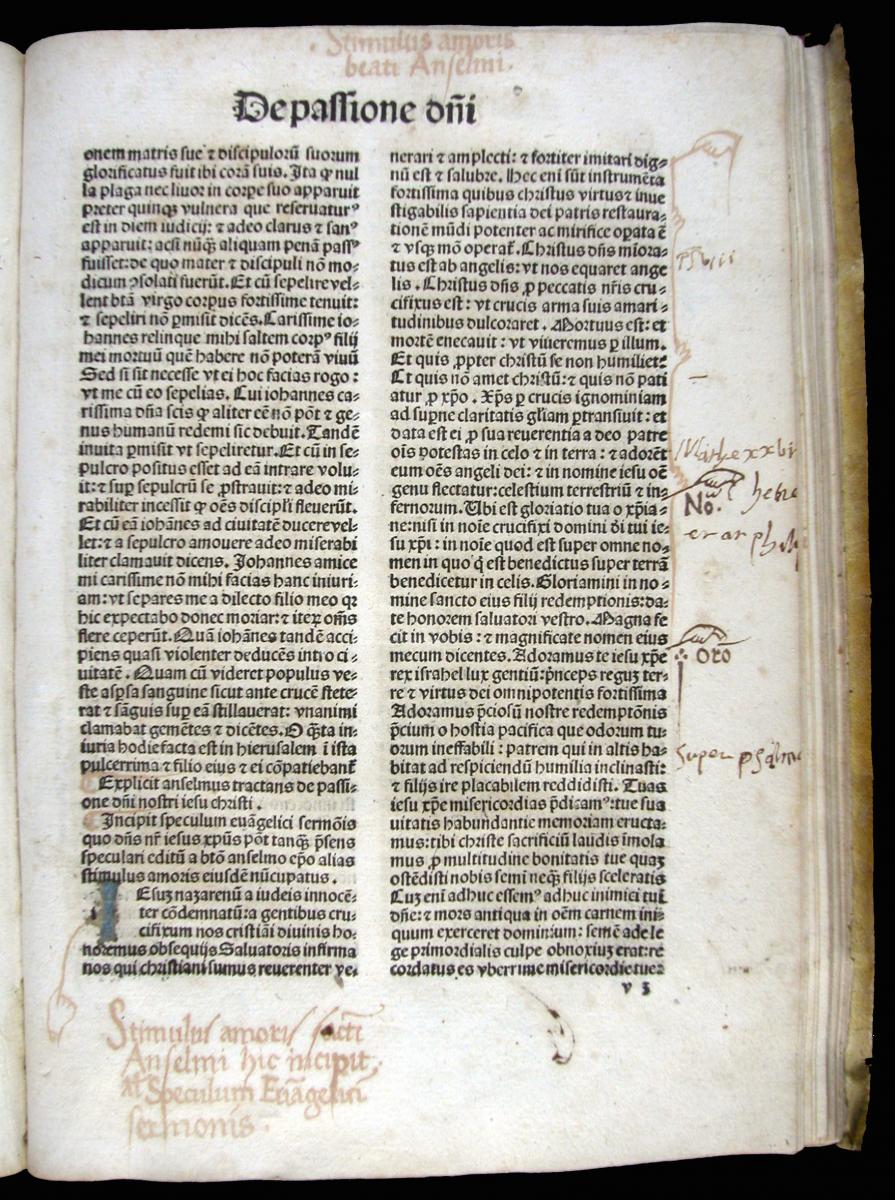 Stimulus amoris
beati Anselmi.
De passione dñi
onem matris sue ⁊ discipulorũ suorum
glorificatus fuit ibi corã suis. Ita ꝙ nul
la plaga nec liuor in corpe suo apparuit
preter quinqꝫ vulnera que reseruaturꝰ
est in diem iudicij: ⁊ adeo clarus ⁊ sanꝰ
apparuit: acsi nũqꝫ aliquam penã passꝰ
fuisset: de quo mater ⁊ discipuli nõ mo⸗
dicum ꝯsolati fuerũt. Et cũ sepelire vel⸗
lent btã virgo corpus fortissime tenuit:
⁊ sepeliri nõ ꝑmisit dicẽs. Carissime io⸗
hannes relinque mihi saltem corpꝰ filij
mei mortuũ quẽ habere nõ poterã viuũ
Sed si sit necesse vt ei hoc facias rogo :
vt me cũ eo sepelias. Cui iohannes ca⸗
rissima dña scis ꝙ aliter eẽ nõ põt ⁊ ge⸗
nus humanũ redemi sic debuit. Tandẽ
inuita ꝑmisit vt sepeliretur. Et cũ in se⸗
pulcro positus esset ad eã intrare volu⸗
it: ⁊ suꝑ sepulcrũ se ꝓstrauit: ⁊ adeo mi⸗
rabiliter incessit ꝙ oẽs discipĺi fleuerũt.
Et cũ eã iohãnes ad ciuitatẽ ducere vel⸗
let: ⁊ a sepulcro amouere adeo miserabi
liter clamauit dicens. Johannes amice
mi carissime nõ mihi facias hanc iniuri⸗
am: vt separes me a dilecto filio meo qꝛ
hic expectabo donec moriar: ⁊ iteꝝ om̃s
flere ceperũt. Quã iohãnes tandẽ acci⸗
piens quasi violenter deducẽs intro ci⸗
uitatẽ . Quam cũ videret populus ve⸗
ste aspsa sanguine sicut ante crucẽ stete⸗
rat ⁊ sãguis suꝑ eã stillauerat: vnanimi
clamabat gemẽtes ⁊ dicẽtes. O q̃ta in⸗
iuria hodie facta est in hierusalem ĩ ista
pulcerrima ⁊ filio eius ⁊ ei cõpatiebant̃
Explicit anselmus tractans de passi⸗
one dñi nostri iesu christi .
Incipit speculum euãgelici sermõis
quo dñs nr̃ iesus xpũs põt tanqꝫ p̃sens
speculari editũ a btõ anselmo ep̃o alias
stimulus amoris eiusdẽ nũcupatus .
IEsuꝫ nazarenũ a iudeis innocẽ⸗
ter cõdemnatũ: a gentibus cru⸗
cifixum nos cristiãi diuinis ho⸗
noremus obsequijs Saluatoris infirma
nos qui christiani sumus reuerenter ve⸗
nerari ⁊ amplecti: ⁊ fortiter imitari dig⸗
nũ est ⁊ salubre. Hec eni sũt instrumẽta
fortissima quibus christus virtus ⁊ inue
stigabilis sapientia dei patris restaura⸗
tionẽ mũdi potenter ac mirifice oꝑata ẽ
⁊ vsqꝫ mõ operat̃. Christus dñs miora⸗
tus est ab angelis: vt nos equaret ange
lis . Christus dñs ꝓ peccatis nr̃is cru⸗
cifixus est : vt crucis arma suis amari⸗
tudinibus dulcoraret . Mortuus est: et
mortẽ enecauit : vt viueremus ꝑ illum.
Et quis ꝓpter christũ se non humiliet?
Et quis nõ amet christũ: ⁊ quis nõ pati
atur ꝓ xp̃o . Xp̃s ꝑ crucis ignominiam
ad suꝑne claritatis gl̃iam ꝑtransiuit : et
data est ei ꝓ sua reuerentia a deo patre
oĩs potestas in celo ⁊ in terra : ⁊ adorẽt
eum oẽs angeli dei : ⁊ in nomine iesu oẽ
genu flectatur: celestium terrestriũ ⁊ in⸗
fernorum. Vbi est gloriatio tua o xp̃ia⸗
ne: nisi in noĩe crucifixi domini di tui ie⸗
su xp̃i : in noĩe quod est super omne no⸗
men in quo q̇ est benedictus super terrã
benedicetur in celis. Gloriamini in no⸗
mine sancto eius filij redemptionis: da⸗
te honorem saluatori vestro. Magna fe
cit in vobis : ⁊ magnificate nomen eius
mecum dicentes. Adoramus te iesu xp̃e
rex israhel lux gentiũ: p̃nceps reguꝫ ter⸗
re ⁊ virtus dei omnipotentis fortissima
Adoramus p̃ciosũ nostre redemptõnis
p̃cium o hostia pacifica que odorum tu⸗
orum ineffabili : patrem qui in altis ha⸗
bitat ad respiciendũ humilia inclinasti:
⁊ filijs ire placabilem reddidisti. Tuas
iesu xp̃e misericordias p̃dicamꝰ: tue sua
uitatis habundantie memoriam eructa⸗
mus: tibi christe sacrificiũ laudis ĩmola
mus ꝓ multitudine bonitatis tue quaꝫ
ostẽdisti nobis semi neqꝫ filijs sceleratis
Cuꝫ eni adhuc essemꝰ adhuc inimici tui
dñe: ⁊ mors antiqua in oẽm carnem ini⸗
quum exerceret dominium: semẽ ade le
ge primordialis culpe obnoxiuꝫ erat: re
cordatus es vberrime misericordie tue:
v 3
No.
Orõ
super psalmu
Stimulus amoris sancti
Anselmi hic incipit,
al' Speculum Euãgelici
sermonis.